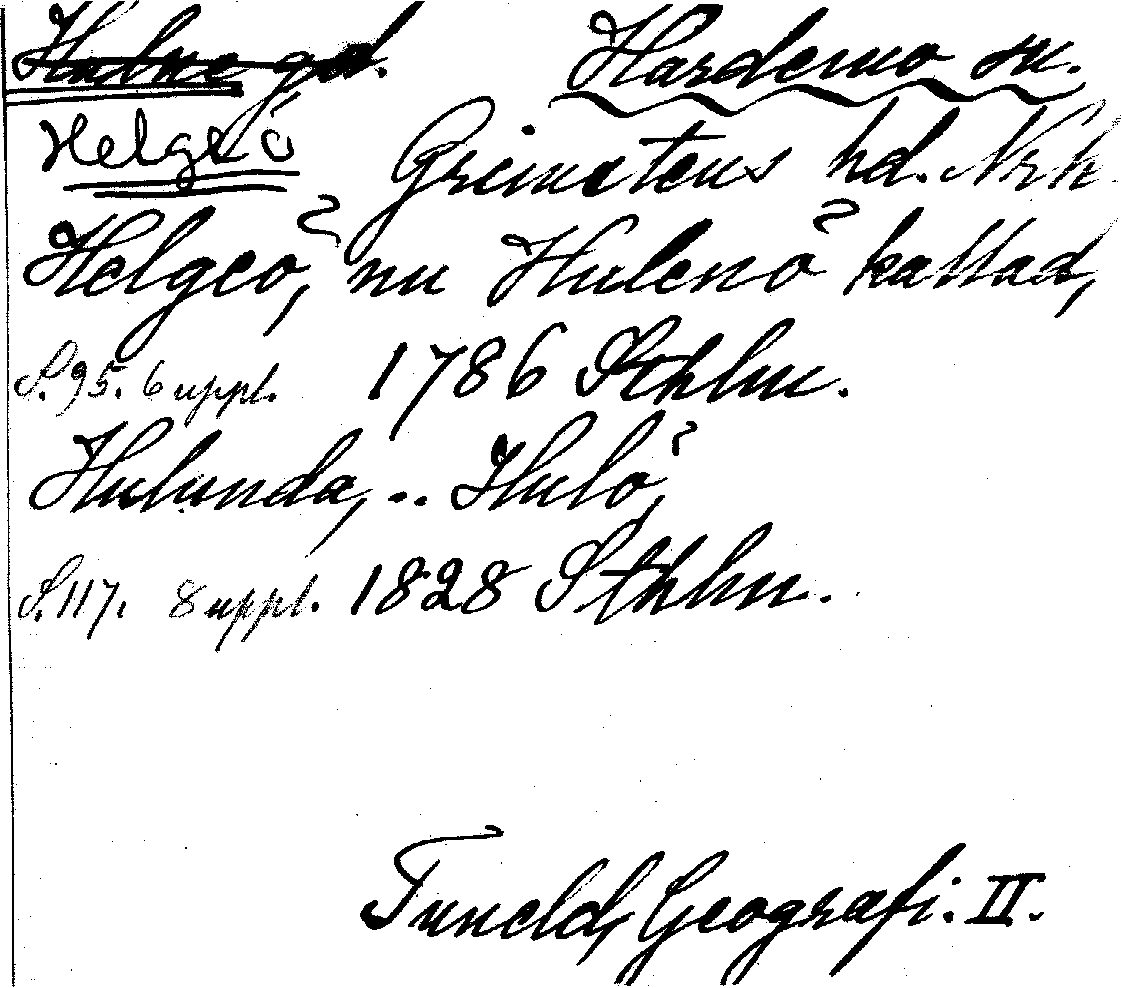 Hulne gd. Hardemo sn.
Helgeö Grimstens hd. Nrk
Helgeö, nu Hulenö kallad,
S. 95. 6 uppl. 1786 Sthlm.
Hulunda, .. Hulö,
S. 117. 8 uppl. 1828 Sthlm.
Tuneld, Geografi. II.